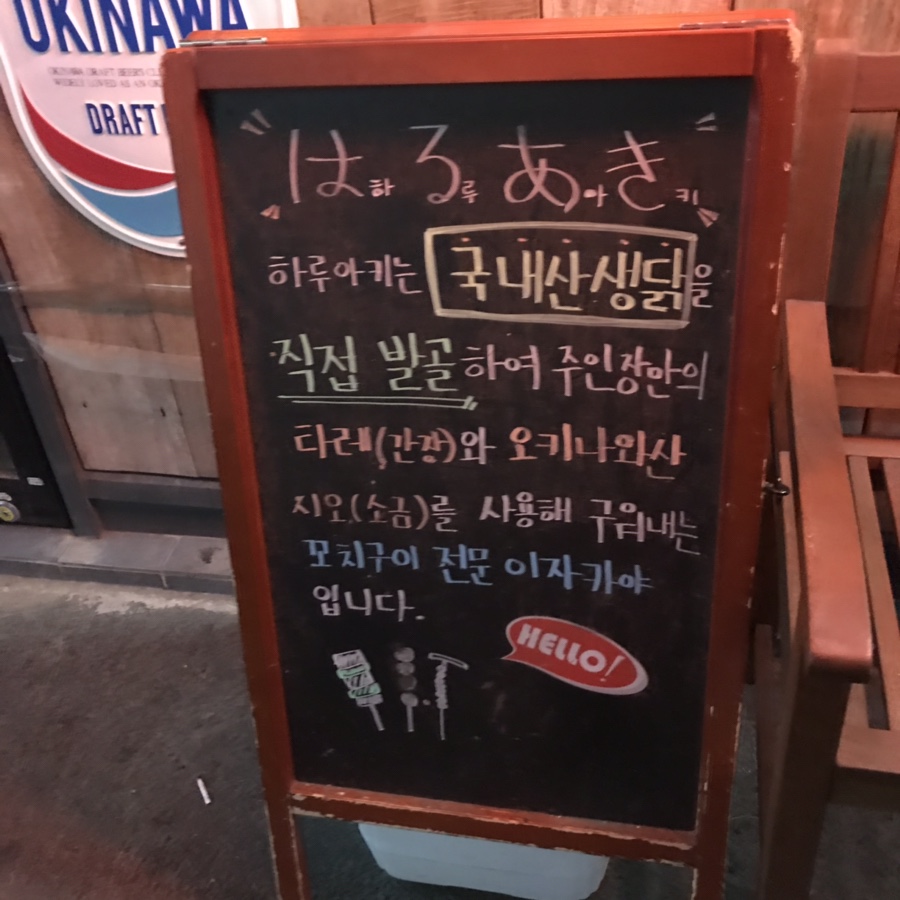 OKINAWA
OKINAWA DRAFT BEER
WIDELY LOVED AS AN
DRAFT
はるあき
하루아키
하루아키는 국내산생닭을
직접 발골하여 주인장만의
타레(간장)와 오키나와산
시오(소금)를 사용해 구워내는
꼬치구이 전문 이자카야
입니다.
HELLO!